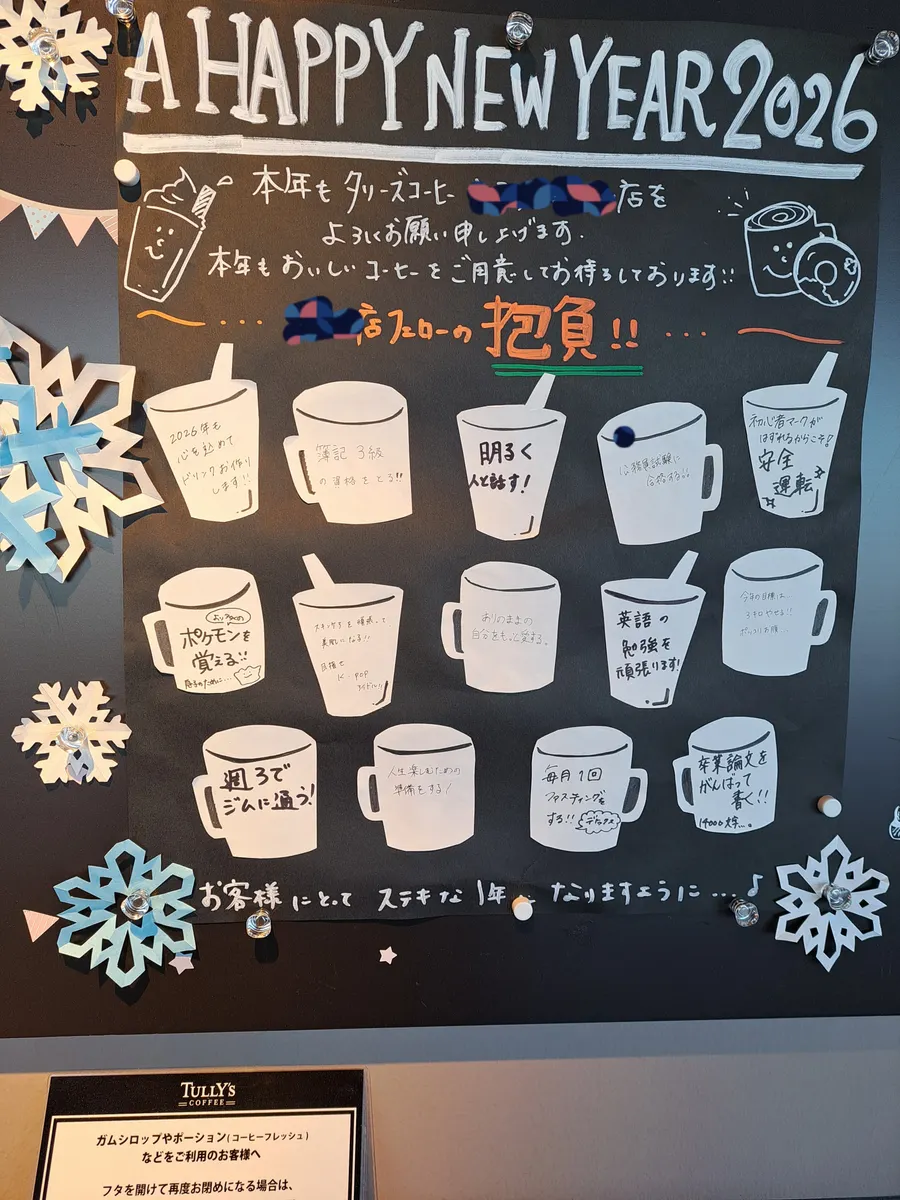 A HAPPY NEW YEAR 2026
本年も タリーズコーヒー 店を
よろしくお願い申し上げます.
本年も おいしい コーヒーを ご用意してお待ちしております!!
店フェローの 抱負!!
2026年も
心を込めて
ドリンクお作り
します!!
簿記 3級
の資格をとる!!
明るく
人と話す!
公務員試験に
合格する!!
初心者マークが
はずれるからこそ!
安全
運転
ポケモンを
覚える!!
スキンケアを頑張って
美肌になる!!
目指せ
K-POP
アイドル!!
ありのままの
自分をもっと愛する。
英語の
勉強を
頑張ります!
今年の目標は…
3キロやせる!!
週3で
ジムに通う!
人生楽しむための
準備をする!
毎月1回
ファスティングを
する!! デトックス
卒業論文を
がんばって
書く!!
14000文字…。
お客様にとって ステキな 1年 なりますように…♪
TULLY'S
COFFEE
ガムシロップやポーション(コーヒーフレッシュ)
などをご利用のお客様へ
フタを開けて再度お閉めになる場合は、